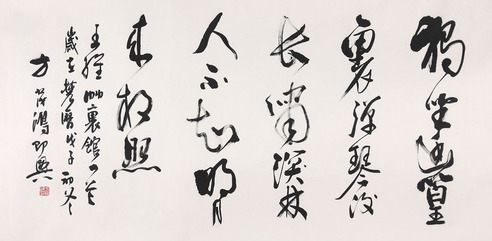 獨坐幽篁
裏彈琴復
长嘯深林
人不知明月
来相照
王維竹裏館
歲在農曆戊子初冬
方鴻即興